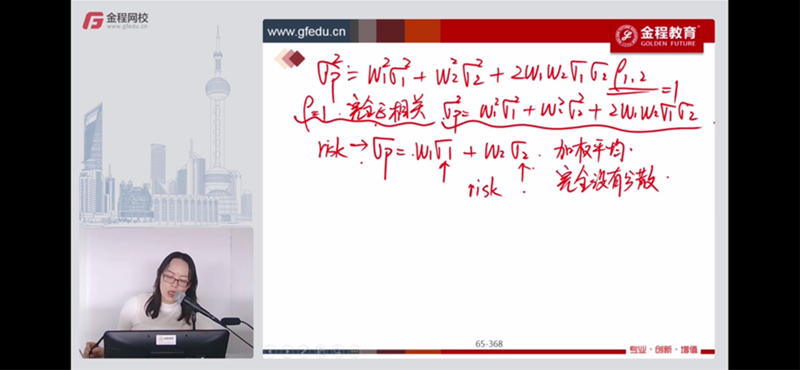 金程网校
www.gfedu.cn
www.gfedu.cn
金程教育
GOLDEN FUTURE
σp² = w₁²σ₁² + w₂²σ₂² + 2w₁w₂σ₁σ₂ρ₁,₂
=1
ρ=1. 完全正相关. σp² = w₁²σ₁² + w₂²σ₂² + 2w₁w₂σ₁σ₂
risk → σp = w₁σ₁ + w₂σ₂. 加权平均.
risk. 完全没有分散.
65-368
专业·创新·增值